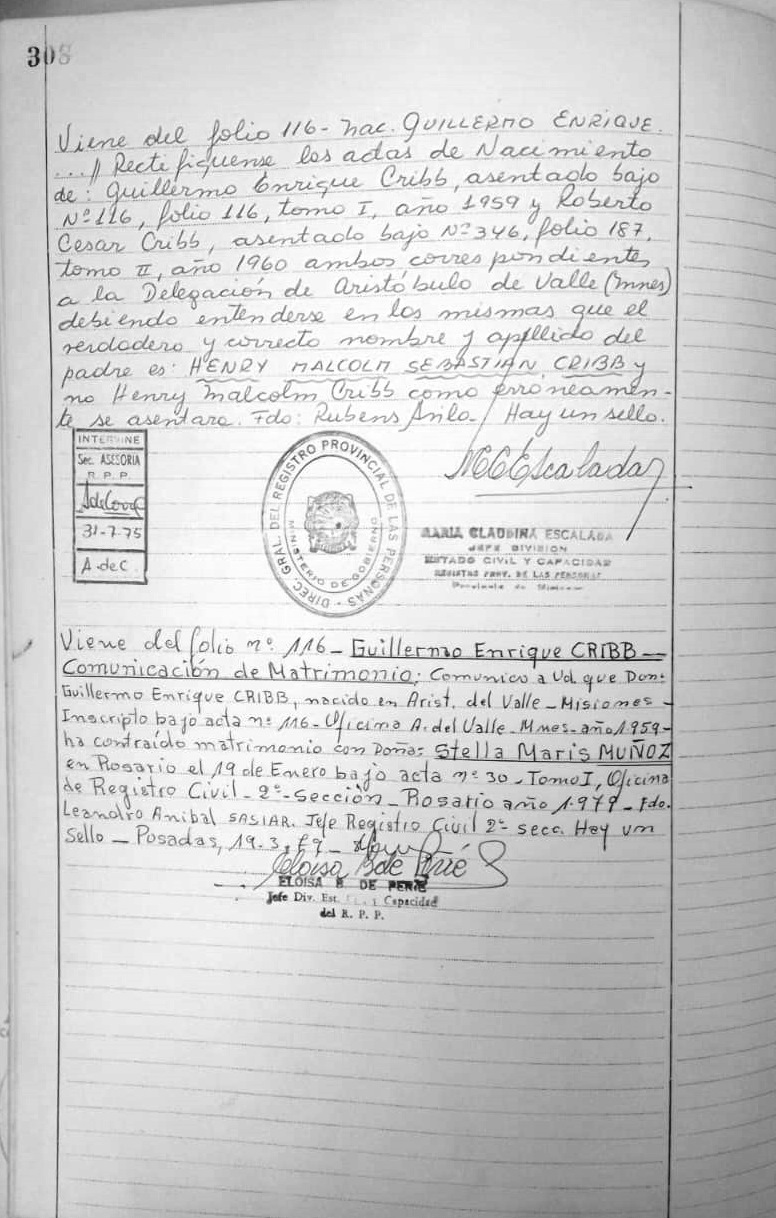 308
Viene del folio 116 - Nac. GUILLERMO ENRIQUE.
...// Rectifiquense las actas de Nacimiento
de: Guillermo Enrique Cribb, asentado bajo
Nº 116, folio 116, tomo I, año 1959 y Roberto
Cesar Cribb, asentado bajo Nº 346, folio 187,
tomo II, año 1960 ambos correspondientes
a la Delegación de Aristóbulo de Valle (Mnes)
debiendo entenderse en los mismas que el
verdadero y correcto nombre y apellido del
padre es: HENRY MALCOLM SEBASTIAN CRIBB y
no Henry Malcolm Cribb como erróneamen-
te se asentara. Fdo: Rubens Avila. Hay un sello.
INTERVINE
Sec. ASESORIA
R. P. P.
31-7-75
A. de C.
DIREC. GRAL. DEL REGISTRO PROVINCIAL DE LAS PERSONAS
MINISTERIO DE GOBIERNO
MCEscalada
MARIA CLAUDINA ESCALADA
JEFE DIVISION
ESTADO CIVIL Y CAPACIDAD
REGISTRO PROV. DE LAS PERSONAS
Provincia de Misiones
Viene del folio nº 116 - Guillermo Enrique CRIBB -
Comunicación de Matrimonio: Comunico a Ud que Don:
Guillermo Enrique CRIBB, nacido en Arist. del Valle - Misiones -
Inscripto bajo acta nº 116 - Oficina A. del Valle - Mnes - año 1.959 -
ha contraído matrimonio con Doña: Stella Maris MUÑOZ
en Rosario el 19 de Enero bajo acta nº 30 - Tomo I, Oficina
de Registro Civil - 2º - Sección - Rosario año 1.979 - Fdo.
Leandro Anibal SASIAR. Jefe Registro Civil 2º secc. Hay un
sello - Posadas, 19.3.79 -
Eloísa B de Perié
ELOISA B. DE PERIE
Jefe Div. Est. Capacidad
del R. P. P.